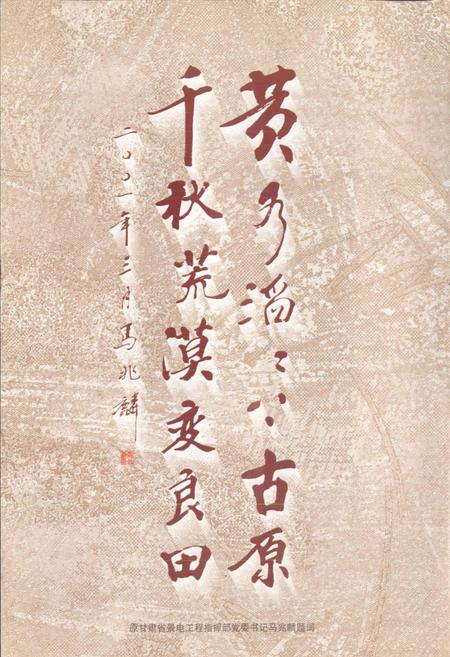 黄水滔々上古原
千秋荒漠变良田
二〇〇一年三月马兆麟
原甘肃省景电工程指挥部党委书记马兆麟题词